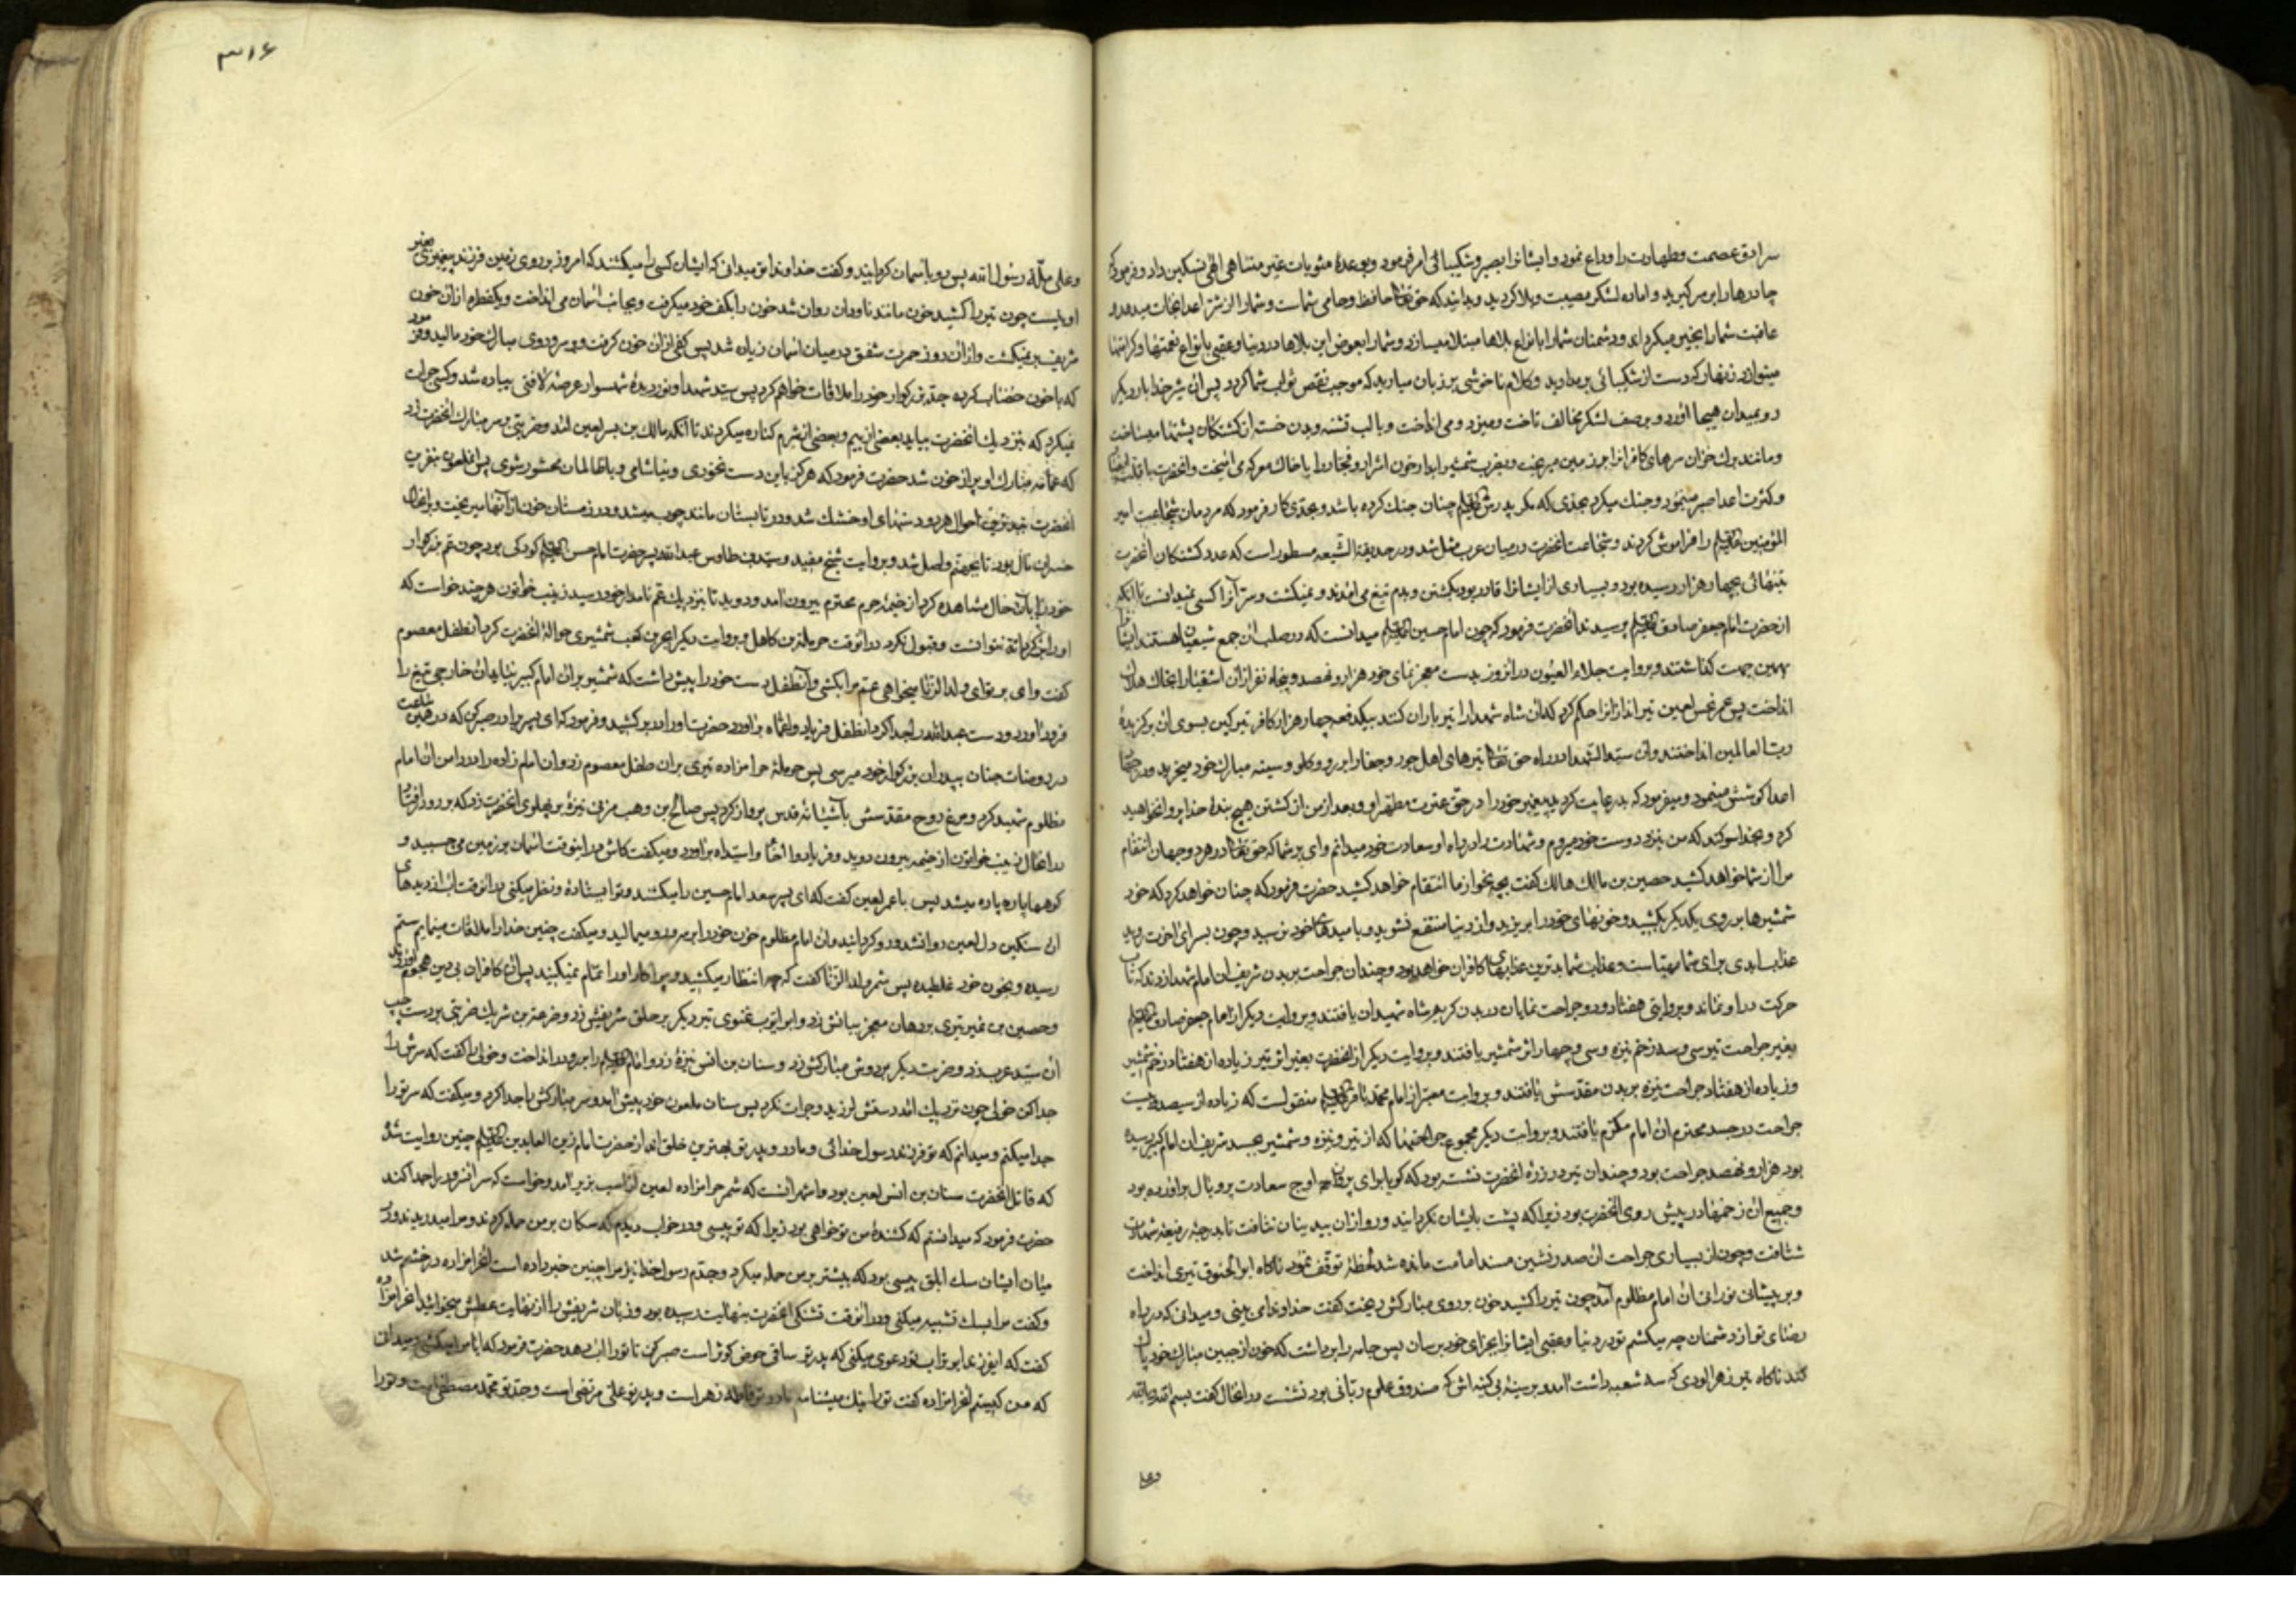 سرادق عصمت وطهارت را وداع نمود وایشانرا بصبر وشکیبائی امر فرمود وبوعدهٔ مثوبات غیر متناهی الهی تسکین داد وفرمود که
چادرها را بر سر کیرید واماده لشکر مصیبت وبلا کردید وبدانید که حق تعالی حافظ وحامی شماست وشمارا از شر اعدا نجات میدهد و
عاقبت شمارا بخیر میکرداند ودشمنان شمارا بانواع بلاها مبتلا میسازد وشمارا بعوض این بلاها در دنیا وعقبی بانواع نعمتها وکرامتها
مینوازد زنهار که دست از شکیبائی برمدارید وکلام ناخوشی بر زبان میارید که موجب نقص ثواب شما کردد پس آن شیر خدا بار دیکر
رو بمیدان هیجا آورد وبر صف لشکر مخالف تاخت ومیزد ومی انداخت وبا لب تشنه وبدن خسته از کشتکان پشتها میساخت
ومانند برک خزان سرهای کافرانرا بر زمین میریخت وبضرب شمشیر ابدار خون اشرار وفجار را با خاک معرکه می امیخت وانحضرت با
وکثرت اعدا صبر مینمود وجنک میکرد بحدی که مکر پدرش علیه السلام چنان جنک کرده باشد وبحدی کار فرمود که مردمان شجاعت امیر
المؤمنین علیه السلام را فراموش کردند وشجاعت انحضرت در میان عرب مثل شد ودر حدیقة الشیعه مسطور است که عدد کشتکان انحضرت
بتنهائی بچهار هزار رسیده بود وبسیاری از ایشانرا قادر بود بکشتن وبدم تیغ می آمدند ونمیکشت وسر آنرا کسی نمیدانست تا انکه
از حضرت امام جعفر صادق علیه السلام پرسیدند آنحضرت فرمود که چون امام حسین علیه السلام میدانست که در صلب آن جمع شیعیان هستند ایشانرا
بهمین جهت کذاشتند وبروایت جلاء العیون در انروز بدست معجزنمای خود هزار ونهصد وپنجاه نفر از ان اشقیا را بخاک هلاک
انداخت پس عمر نحس لعین تیر اندازانرا حکم کرد که آن شاه شهدا را تیر باران کنند بیکدفعه چهار هزار کافر تیر کین بسوی آن برکزیدهٔ
رب العالمین انداختند وآن سید الشهدا در راه حق تعالی تیرهای اهل جور وجفا را بر رو وکلو وسینه مبارک خود میخرید ودر جهاد
اعدا کوشش مینمود ومیفرمود که بد رعایت کردید پیغمبر خود را در حق عترت مطهر او وبعد از من از کشتن هیچ بندهٔ خدا پروا نخواهید
کرد وبخدا سوکند که من بنزد دوست خود میروم وشهادت را در راه او سعادت خود میدانم وای بر شما که حق تعالی در هر دو جهان انتقام
مرا از شما خواهد کشید حصین بن مالک هالک کفت بچه نحو از ما انتقام خواهد کشید حضرت فرمود که چنان خواهد کرد که خود
شمشیرها بر روی یکدیکر بکشید وخونهای خود را بریزید واز دنیا منتفع نشوید وبا میدهای خود نرسید وچون بسرای اخرت روید
عذاب ابدی برای شما مهیاست وعذاب شما بدترین عذابهای کافران خواهد بود وچندان جراحت بر بدن شریف ان امام شهدا زدند که تاب
حرکت در او نماند وبروایتی هفتاد ودو جراحت نمایان در بدن کریم شاه شهیدان یافتند وبروایت دیکر از امام جعفر صادق علیه السلام
بغیر جراحت تیر سی وسه زخم نیزه وسی وچهار اثر شمشیر یافتند وبروایت دیکر از انحضرت بغیر اثر تیر زیاده از هفتاد زخم شمشیر
وزیاده از هفتاد جراحت نیزه بر بدن مقدسش یافتند وبروایت معتبر از امام محمد باقر علیه السلام منقولست که زیاده از سیصد وبیست
جراحت در جسد محترم ان امام مکرم یافتند وبروایت دیکر مجموع جراحتها که از تیر ونیزه وشمشیر بجسد شریف ان امام کبیر رسیده
بود هزار ونهصد جراحت بود وچندان تیر در زرهٔ انحضرت نشسته بود که کویا برای پرواز اوج سعادت پر وبال براورده بود
وجمیع ان زخمها در پیش روی انحضرت بود زیرا که پشت بایشان نکردانید ورو از ان بیدینان نتافت تا بدرجهٔ رفیعهٔ شهادت
شتافت وچون از بسیاری جراحت ان صدر نشین مسند امامت مانده شد لحظهٔ توقف نمود ناکاه ابو الحنوق تیری انداخت
وبر پیشانی نورانی ان امام مظلوم آمد چون تیر را کشید خون بر روی مبارکش ریخت کفت خداوندا می بینی ومیدانی که در راه
رضای تو از دشمنان چه میکشم تو در دنیا وعقبی ایشانرا بجزای خود برسان پس جامه را برداشت که خون از جبین مبارک خود پاک
کند ناکاه تیر زهرالودی که سه شعبه داشت آمد وبر سینهٔ بی کینه اش که صندوق علوم ربانی بود نشست در انحال کفت بسم الله وبالله
وعلی
۳۱۶
وعلی ملّة رسول الله پس رو باسمان کردانید وکفت خداوندا تو میدانی که ایشان کسی را میکشند که امروز بر روی زمین فرزند پیغمبری بغیر
او نیست چون تیر را کشید خون مانند ناودان روان شد خون را بکف خود میکرفت وبجانب اسمان می انداخت ویکقطره از ان خون
شریف بر نمیکشت واز ان روز حمرت شفق در میان اسمان زیاده شد پس کفی از ان خون کرفت وبر سر وروی مبارک خود مالید وفرمود
که با خون خضاب کرده جد بزرکوار خود را ملاقات خواهم کرد پس سید شهدا ونوردیدهٔ شهسوار عرصهٔ لافتی پیاده شد وکسی جرات
نمیکرد که بنزدیک انحضرت بیاید بعضی از بیم وبعضی از شرم کناره میکردند تا آنکه مالک بن یسر لعین آمد وضربتی بر سر مبارک انحضرت زد
که عمامهٔ مبارک او پر از خون شد حضرت فرمود که هرکز باین دست نخوری ونیاشامی وبا ظالمان محشور شوی پس آنملعون بنفرین
انحضرت بتبدترین احوال هر دو دستهای او خشک شد ودر تابستان مانند چوب میشد ودر زمستان خون از آنها میریخت وبرانحال
خسران مآل بود تا بجهنم واصل شد وبروایت شیخ مفید وسید بن طاوس عبدالله پسر حضرت امام حسن علیه السلام کودکی بود چون عم بزرکوار
خود را بآن حال مشاهده کرد از خیمهٔ حرم محترم بیرون آمد ودوید تا بنزدیک عم نامدار خود رسید زینب خواتون هر چند خواست که
او را برکرداند نتوانست وقبول نکرد در آنوقت حرملة بن کاهل وبروایت دیکر ابجر بن کعب شمشیری حوالهٔ انحضرت کرد آنطفل معصوم
کفت وای بر تو ای ولد الزنا میخواهی عم مرا بکشی وآنطفل دست خود را پیش داشت که شمشیر بر ان امام کبیر نیاید آن خارجی تیغ را
فرود آورد ودست عبدالله را جدا کرد آنطفل فریاد واعماه برآورد حضرت او را در بر کشید وفرمود که ای پسر برادر صبر کن که در همین ساعت
در روضات جنان بپدران بزرکوار خود میرسی پس حرملهٔ حرامزاده تیری بران طفل معصوم زد وان امام زاده را در دامن ان امام
مظلوم شهید کرد ومرغ روح مقدسش بآشیانهٔ قدس پرواز کرد پس صالح بن وهب مزنی نیزهٔ بر پهلوی انحضرت زد که بر رو در افتاد
در انحال زینب خواتون از خیمه بیرون دوید وفریاد وا اخاه وا سیداه برآورد ومیکفت کاش در اینوقت اسمان بر زمین می چسبید و
کوهها پاره پاره میشد پس با عمر لعین کفت که ای پسر سعد امام حسین را میکشند وتو ایستادهٔ ونظر میکنی در انوقت آب از دیدهای
ان سنکین دل لعین روانشد ورو کردانید وان امام مظلوم خون خود را بر سر ورو میمالید ومیکفت چنین خدا را ملاقات مینمایم ستم
رسیده وبخون خود غلطیده پس شمر ولد الزنا کفت که چه انتظار میکشید وچرا کار او را تمام نمیکنید پس ان کافران بی دین هجوم آوردند
وحصین بن نمیر تیری بر دهان معجز بیانش زد وابو ایوب غنوی تیر دیکر بر حلق شریفش زد وضرعة بن شریک ضربتی بر دست چپ
ان سید عرب زد وضربت دیکر بر دوش مبارکش زد وسنان بن انس نیزهٔ زد وامام علیه السلام را بر رو در انداخت وخولی را کفت که سرش را
جدا کن خولی چون نزدیک آمد دستش لرزید وجرات نکرد پس سنان ملعون خود پیش آمد وسر مبارکش را جدا کرد ومیکفت که سر تو را
جدا میکنم ومیدانم که تو فرزند رسول خدائی ومادر وپدر تو بهترین خلق اند از حضرت امام زین العابدین علیه السلام چنین روایت شده
که قاتل انحضرت سنان بن انس لعین بود واشهر آنست که شمر حرامزاده لعین از اسب بزیر آمد وخواست که سر انسرور را جدا کند
حضرت فرمود که میدانستم که کشندهٔ من تو خواهی بود زیرا که تو پیسی ودر خواب دیدم که سکان بر من حمله کردند ومرا میدریدند ودر
میان ایشان سک ابلق پیسی بود که بیشتر بر من حمله میکرد وجدم رسول خدا نیز مرا چنین خبر داده است آنحرامزاده در خشم شد
وکفت مرا بسک تشبیه میکنی ودر انوقت تشنکی انحضرت بنهایت رسیده بود وزبان شریفش را از نهایت عطش میخوائید آنحرامزاده
کفت که ایفرزند ابو تراب تو دعوی میکنی که پدر تو ساقی حوض کوثر است صبر کن تا تو را آب دهد حضرت فرمود که ایا مرا میکشی ومیدانی
که من کیستم آنحرامزاده کفت تو را نیک میشناسم مادر تو فاطمه زهراست وپدر تو علی مرتضی است وجد تو محمد مصطفی است وتو را